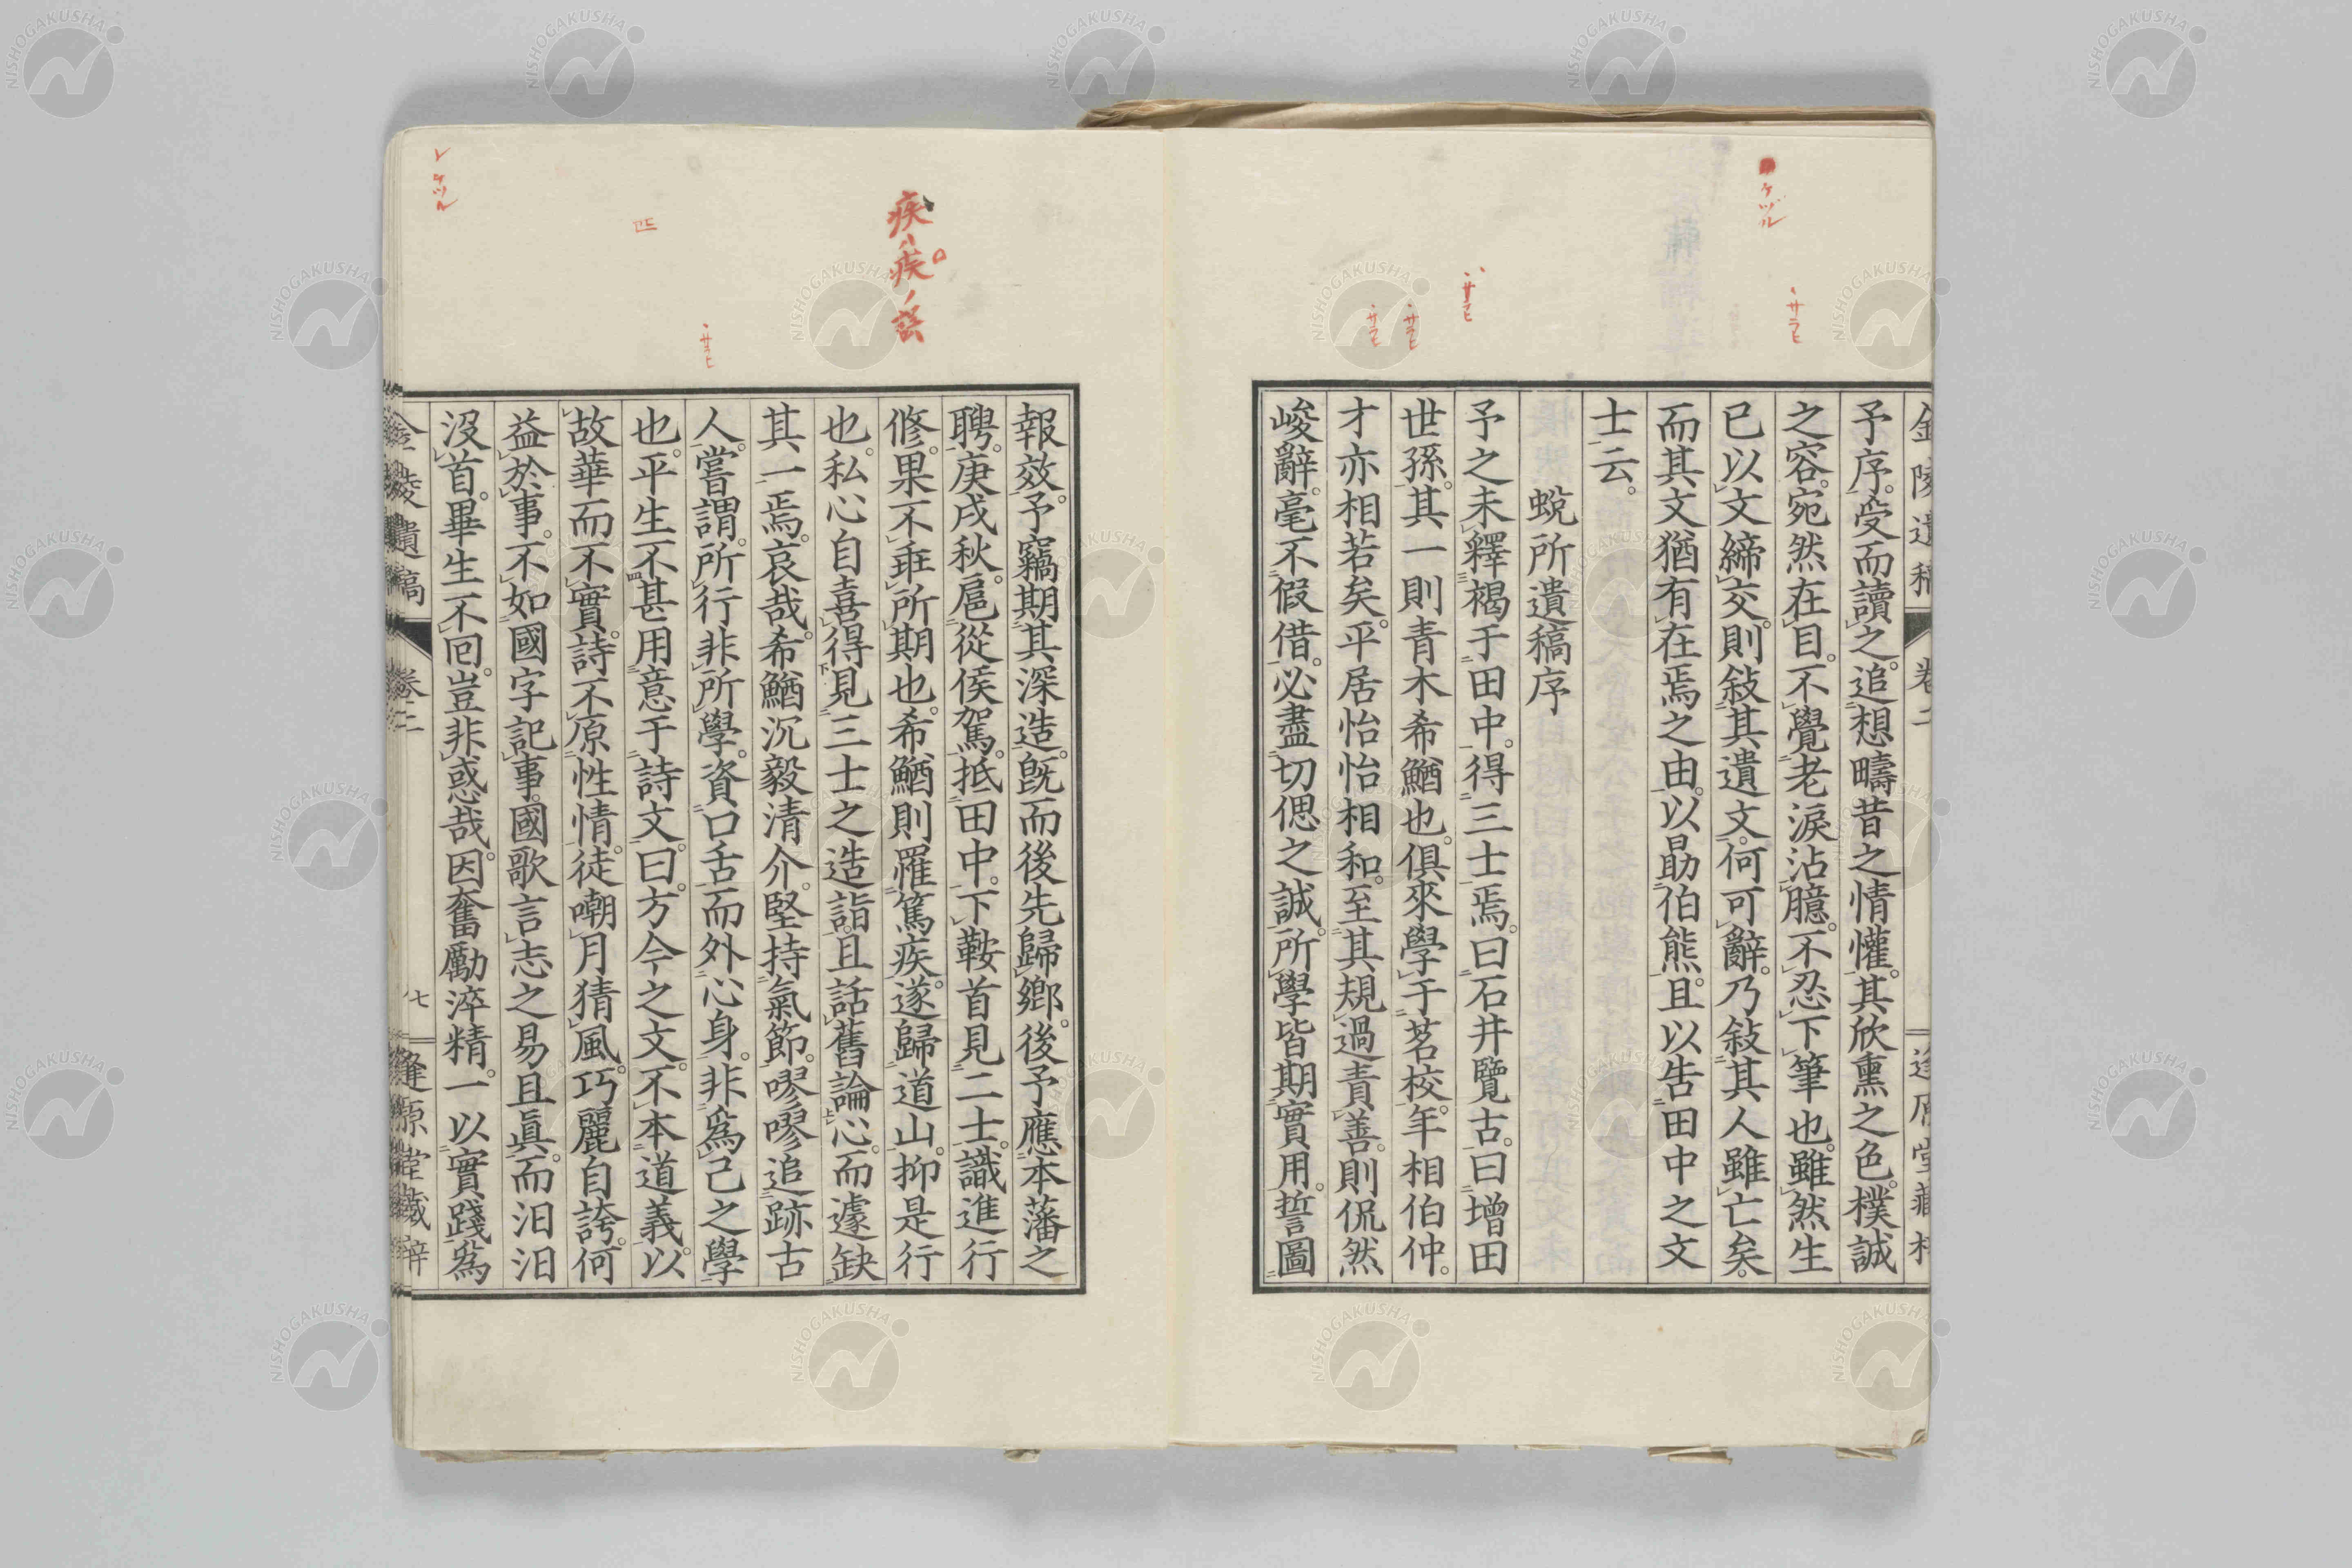 金陵遺稿 卷二 逢原堂藏梓
予序。受而讀之。追想疇昔之情懽。其欣熏之色。樸誠
之容。宛然在目。不覺老淚沾臆。不忍下筆也。雖然生
已以文締交。則敍其遺文。何可辭。乃敍其人雖亡矣。
而其文猶有在焉之由。以勗伯熊。且以告田中之文
士云。
蛻所遺稿序
予之未釋褐于田中。得三士焉。曰石井覽古。曰增田
世孫。其一則青木希鰌也。俱來學于茗校。年相伯仲。
才亦相若矣。平居怡怡相和。至其規過責善。則侃然
峻辭。毫不假借。必盡切偲之誠。所學皆期實用。誓圖
報效。予竊期其深造。旣而後先歸鄉。後予應本藩之
聘。庚戌秋。扈從侯駕。抵田中。下鞍首見二士。識進行
修。果不乖所期也。希鰌則罹篤疾。遂歸道山。抑是行
也。私心自喜得見三士之造詣。且話舊論心。而遽缺
其一焉。哀哉。希鰌沉毅清介。堅持氣節。嘐嘐追跡古
人。嘗謂。所行非所學。資口舌而外心身。非爲己之學
也。平生不甚用意于詩文。曰。方今之文。不本道義。以
故華而不實。詩不原性情。徒嘲月猜風。巧麗自誇。何
益於事。不如國字記事。國歌言志之易且眞。而汨汨
沒首。畢生不回。豈非惑哉。因奮勵淬精。一以實踐爲
金陵遺稿 卷二 七 逢原堂藏梓
ケヅル
サラヒ
サラヒ
サラヒ
疾ハ疾ノ誤
サラヒ
レ
ケヅル
NISHOGAKUSHA